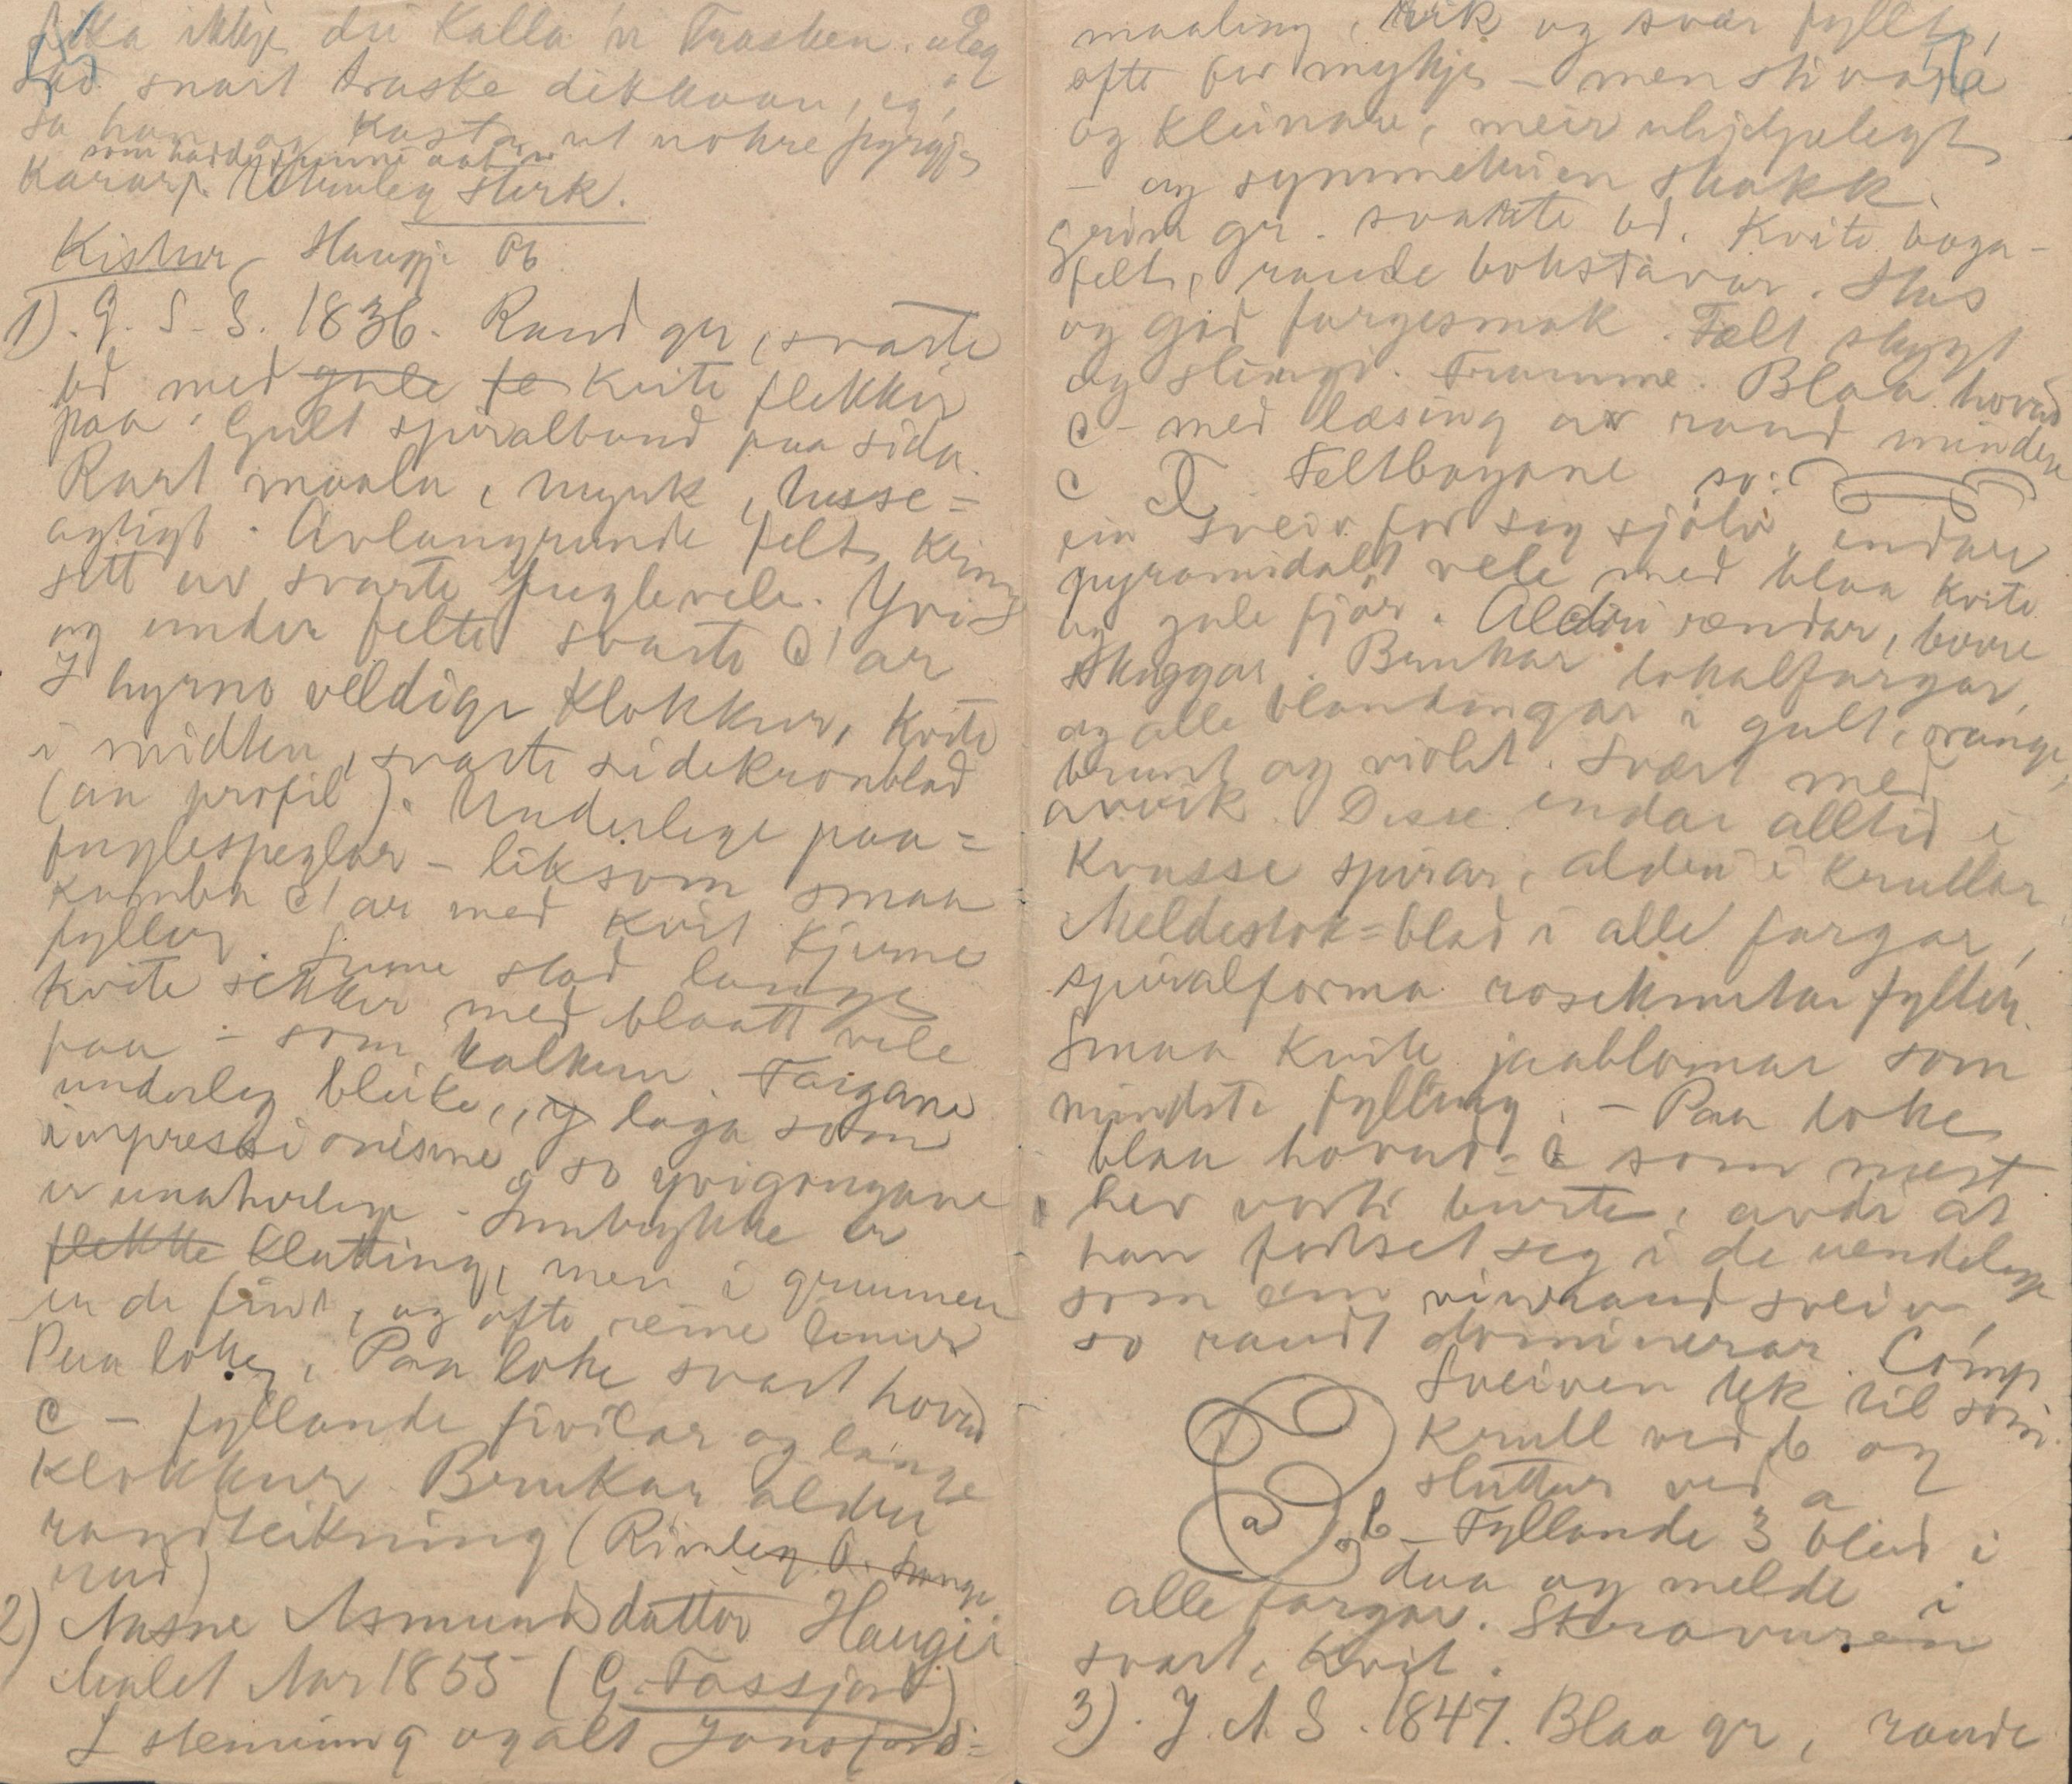 lika ikkje dei kalla 'n Trasken. "Eg
ska snart traske dikkaan, eg,"
sa han og kasta ut nokre
som hadde
karar. Uhorveleg sterk.
Kistur, Haugji Ob
1). G. S. S. 1836. Raud gr, svarte
bd med gule fe kvite flekkir
paa. Gult spiralbaand paa sida.
Rart maala, mjuk, tusse=
agtigt. Avlangrunde felt, kring
sett av svarte fuglevele. Yvi
og under felte svarte C'ar
I hyrno veldige klokkur, kvite
i midten, svarte sidekronblad
(an profil). Underlege paa=
fuglespeglar - liksom smaa
kumba C'ar med kvit kjerne
fyller. Sume stad lange
kvite sekkir med blaatt vele
paa - som kalkun. Fargane
underleg bleike, og laga som
impressionisme, so yvigongane
er umerkelege. Inntrykke er
flekke klatting, men i grunnen
er de fint, og ofte reine linur
Paa loke, Paa loke svart hovud
C - fyllande fivilar og lange
klokkur Brukar aldri
randteikning (Rimleg O.
rud)
2) Aasne Asmundsdatter Haugji
Malet Aar 1855 (G. Fossjord)
I stemning ogalt Jonsjord=
maaling, rik og svær fyllt,
ofte for mykje - men stivare
og kleinare, meir uhjelpelegt
- og symmetrien skakk.
grøn gr. svarte bd. Kvite boga-
felt, raude bokstavar. Stas
og god fargesmak. Felt skygt
og slingr. Framme. Blaa hovud
C - med læsing av raud mindre
C Feltbogane so:
ein sveiv for seg sjølv, endar
pyramidalt vele med blaa kvite
og gule fjør. Aldri rendar, berre
skuggar. Brukar lokalfargar,
og alle blandingar i gult, orange,
brunt og violet. Svært med
avvik. Desse endar alltid i
kvasse spirar, aldri i krullar
Meldestok=blad i alle fargar,
spiralforma roseknutar fyller.
Smaa kvite jaablomar som
mindste fylling. - Paa loke
blaa hovud=C som mest
hev vorti burte, avdi at
han fortset seg i de uendelege
som ein vinraud sveiv,
so raudt dominerar Comp
Sveiven tek til som
krull ved b og
sluttar ved a
a b - Fyllande 3 blad i
daa og melde i
alle fargar. Skravuren
svart, kvit.
3). J. A. S. 1847. Blaa gr, raude